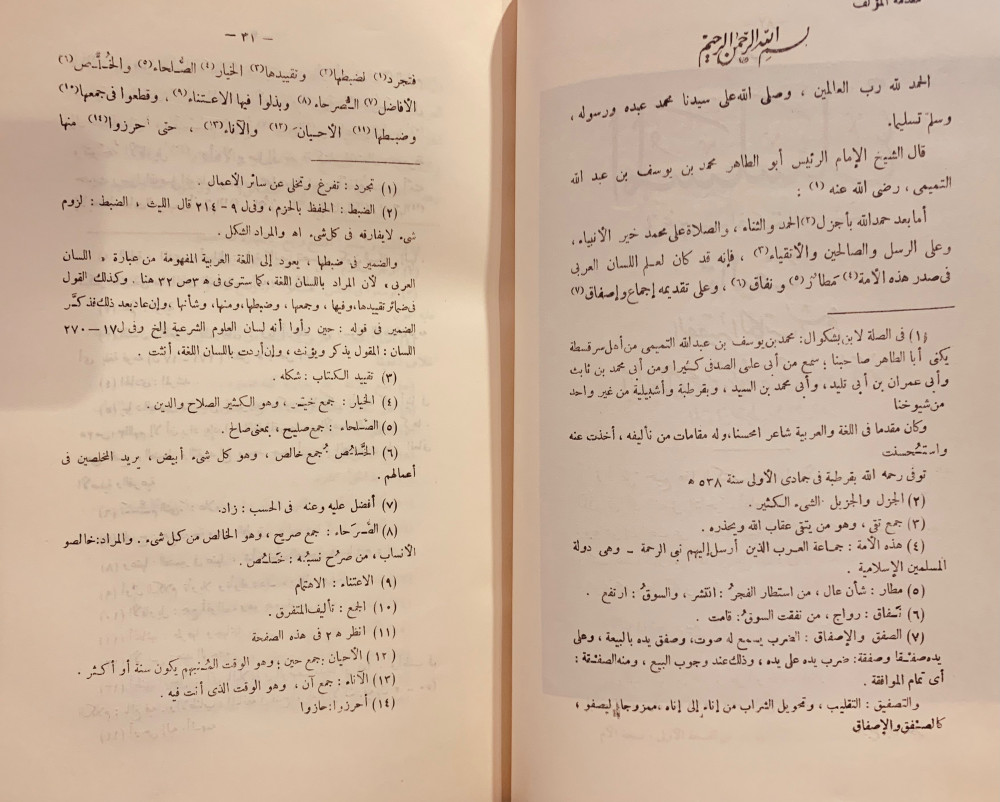 مقدمة المؤلف
بسم الله الرحمن الرحيم
الحمد لله رب العالمين ، وصلى الله على سيدنا محمد عبده ورسوله ،
وسلم تسليما.
قال الشيخ الإمام الرئيس أبو الطاهر محمد بن يوسف بن عبد الله
التميمى ، رضى الله عنه (١) :
أما بعد حمد الله بأجزل (٢) الحمد والثناء ، والصلاة على محمد خير الأنبياء ،
وعلى الرسل والصالحين والأتقياء (٣) ، فإنه قد كان لعلم اللسان العربى
فى صدر هذه الأمة (٤) مَطار (٥) و نفاق (٦) ، وعلى تقديمه إجماع وإصفاق (٧)
(١) فى الصلة لابن بشكوال: محمد بن يوسف بن عبد الله التميمى من أهل سرقسطة
يكنى أبا الطاهر صاحبنا ؛ سمع من أبى على الصدفى كثيرا ومن أبى محمد بن ثابت
وأبى عمران بن أبى تليد ، وأبى محمد بن السيد ، وبقرطبة وأشبيلية من غير واحد
من شيوخنا
وكان مقدما فى اللغة والعربية شاعرا محسنا، وله مقامات من تأليفه ، أخذت عنه
واستُحسنت
توفى رحمه الله بقرطبة فى جمادى الأولى سنة ٥٣٨ ه
(٢) الجزل والجزيل الشىء الكثير .
(٣) جمع تقى ، وهو من يتقى عقاب الله ويحذره .
(٤) هذه الأمة : جماعة العرب الذين أرسل إليهم نبى الرحمة – وهى دولة
المسلمين الإسلامية .
(٥) مطار : شأن عال ، من استطار الفجرُ : انتشر ، والسوقُ : ارتفع .
(٦) نَفاق : رواج ، من نفقت السوقُ : قامت .
(٧) الصفق والإصفاق : الضرب يسمع له صوت، وصفق يده بالبيعة ، وعلى
يده صفقا وصفقة: ضرب يده على يده ، وذلك عند وجوب البيع ، ومنه الصفقة :
أى تمام الموافقة .
والتصفيق : التقليب ، وتحويل الشراب من إناء إلى إناء ، ممزوجا ليصفو ،
كالصفق والإصفاق
– ٣١ –
فتجرد (١) لضبطها (٢) وتقييدها (٣) الخيار (٤) الصُّلحاء (٥) والخُلَّص (٦)
الأفاضل (٧) الصُّرحاء (٨) وبذلوا فيها الاعتناء (٩) ، وقطعوا فى جمعها (١٠)
وضبطها (١١) الأحيان (١٢) والآناء (١٣) ، حتى أحرزوا (١٤) منها
(١) تجرد : تفرغ وتخلى عن سائر الأعمال .
(٢) الضبط : الحفظ بالحزم ، وفى ل ٩ – ٢١٤ قال الليث ، الضبط : لزوم
شىء لا يفارقه فى كل شىء اه والمراد الشكل .
والضمير فى ضبطها ، يعود إلى اللغة العربية المفهومة من عبارة « اللسان
العربى ، لأن المراد باللسان اللغة ، كما سترى فى ه ٣ ص ٣٢ هنا . وكذلك القول
فى ضمائر تقييدها، وفيها ، وجمعها ، وضبطها، ومنها، وشأنها ،وإن عاد بعد ذلك فذكَّر
الضمير فى قوله : حين رأوا أنه لسان العلوم الشرعية إلخ وفى ل ١٧ – ٢٧٠
اللسان : المقول يذكر ويؤنث ، وإن أردت باللسان اللغة، أنثت .
(٣) تقييد الكتاب : شكله .
(٤) الخيار : جمع خيّر ، وهو الكثير الصلاح والدين .
(٥) الصُّلحاء : جمع صليح ، بمعنى صالح .
(٦) الخُلَّص : جمع خالص ، وهو كل شىء أبيض ، يريد المخلصين فى
أعمالهم .
(٧) أفضل عليه وعنه فى الحسب : زاد.
(٨) الصُّرَحاء : جمع صريح ، وهو الخالص من كل شىء . والمراد: خالصو
الأنساب ، من صرُح نسبُه : خَلُص .
(٩) الاعتناء : الاهتمام
(١٠) الجمع : تأليف المتفرق .
(١١) انظر ه ٢ فى هذه الصفحة
(١٢) الأحيان : جمع حين : وهو الوقت المُبهم يكون سنة أو أكثر .
(١٣) الآناء : جمع آن ، وهو الوقت الذى أنت فيه .
(١٤) أحرزوا: حازوا